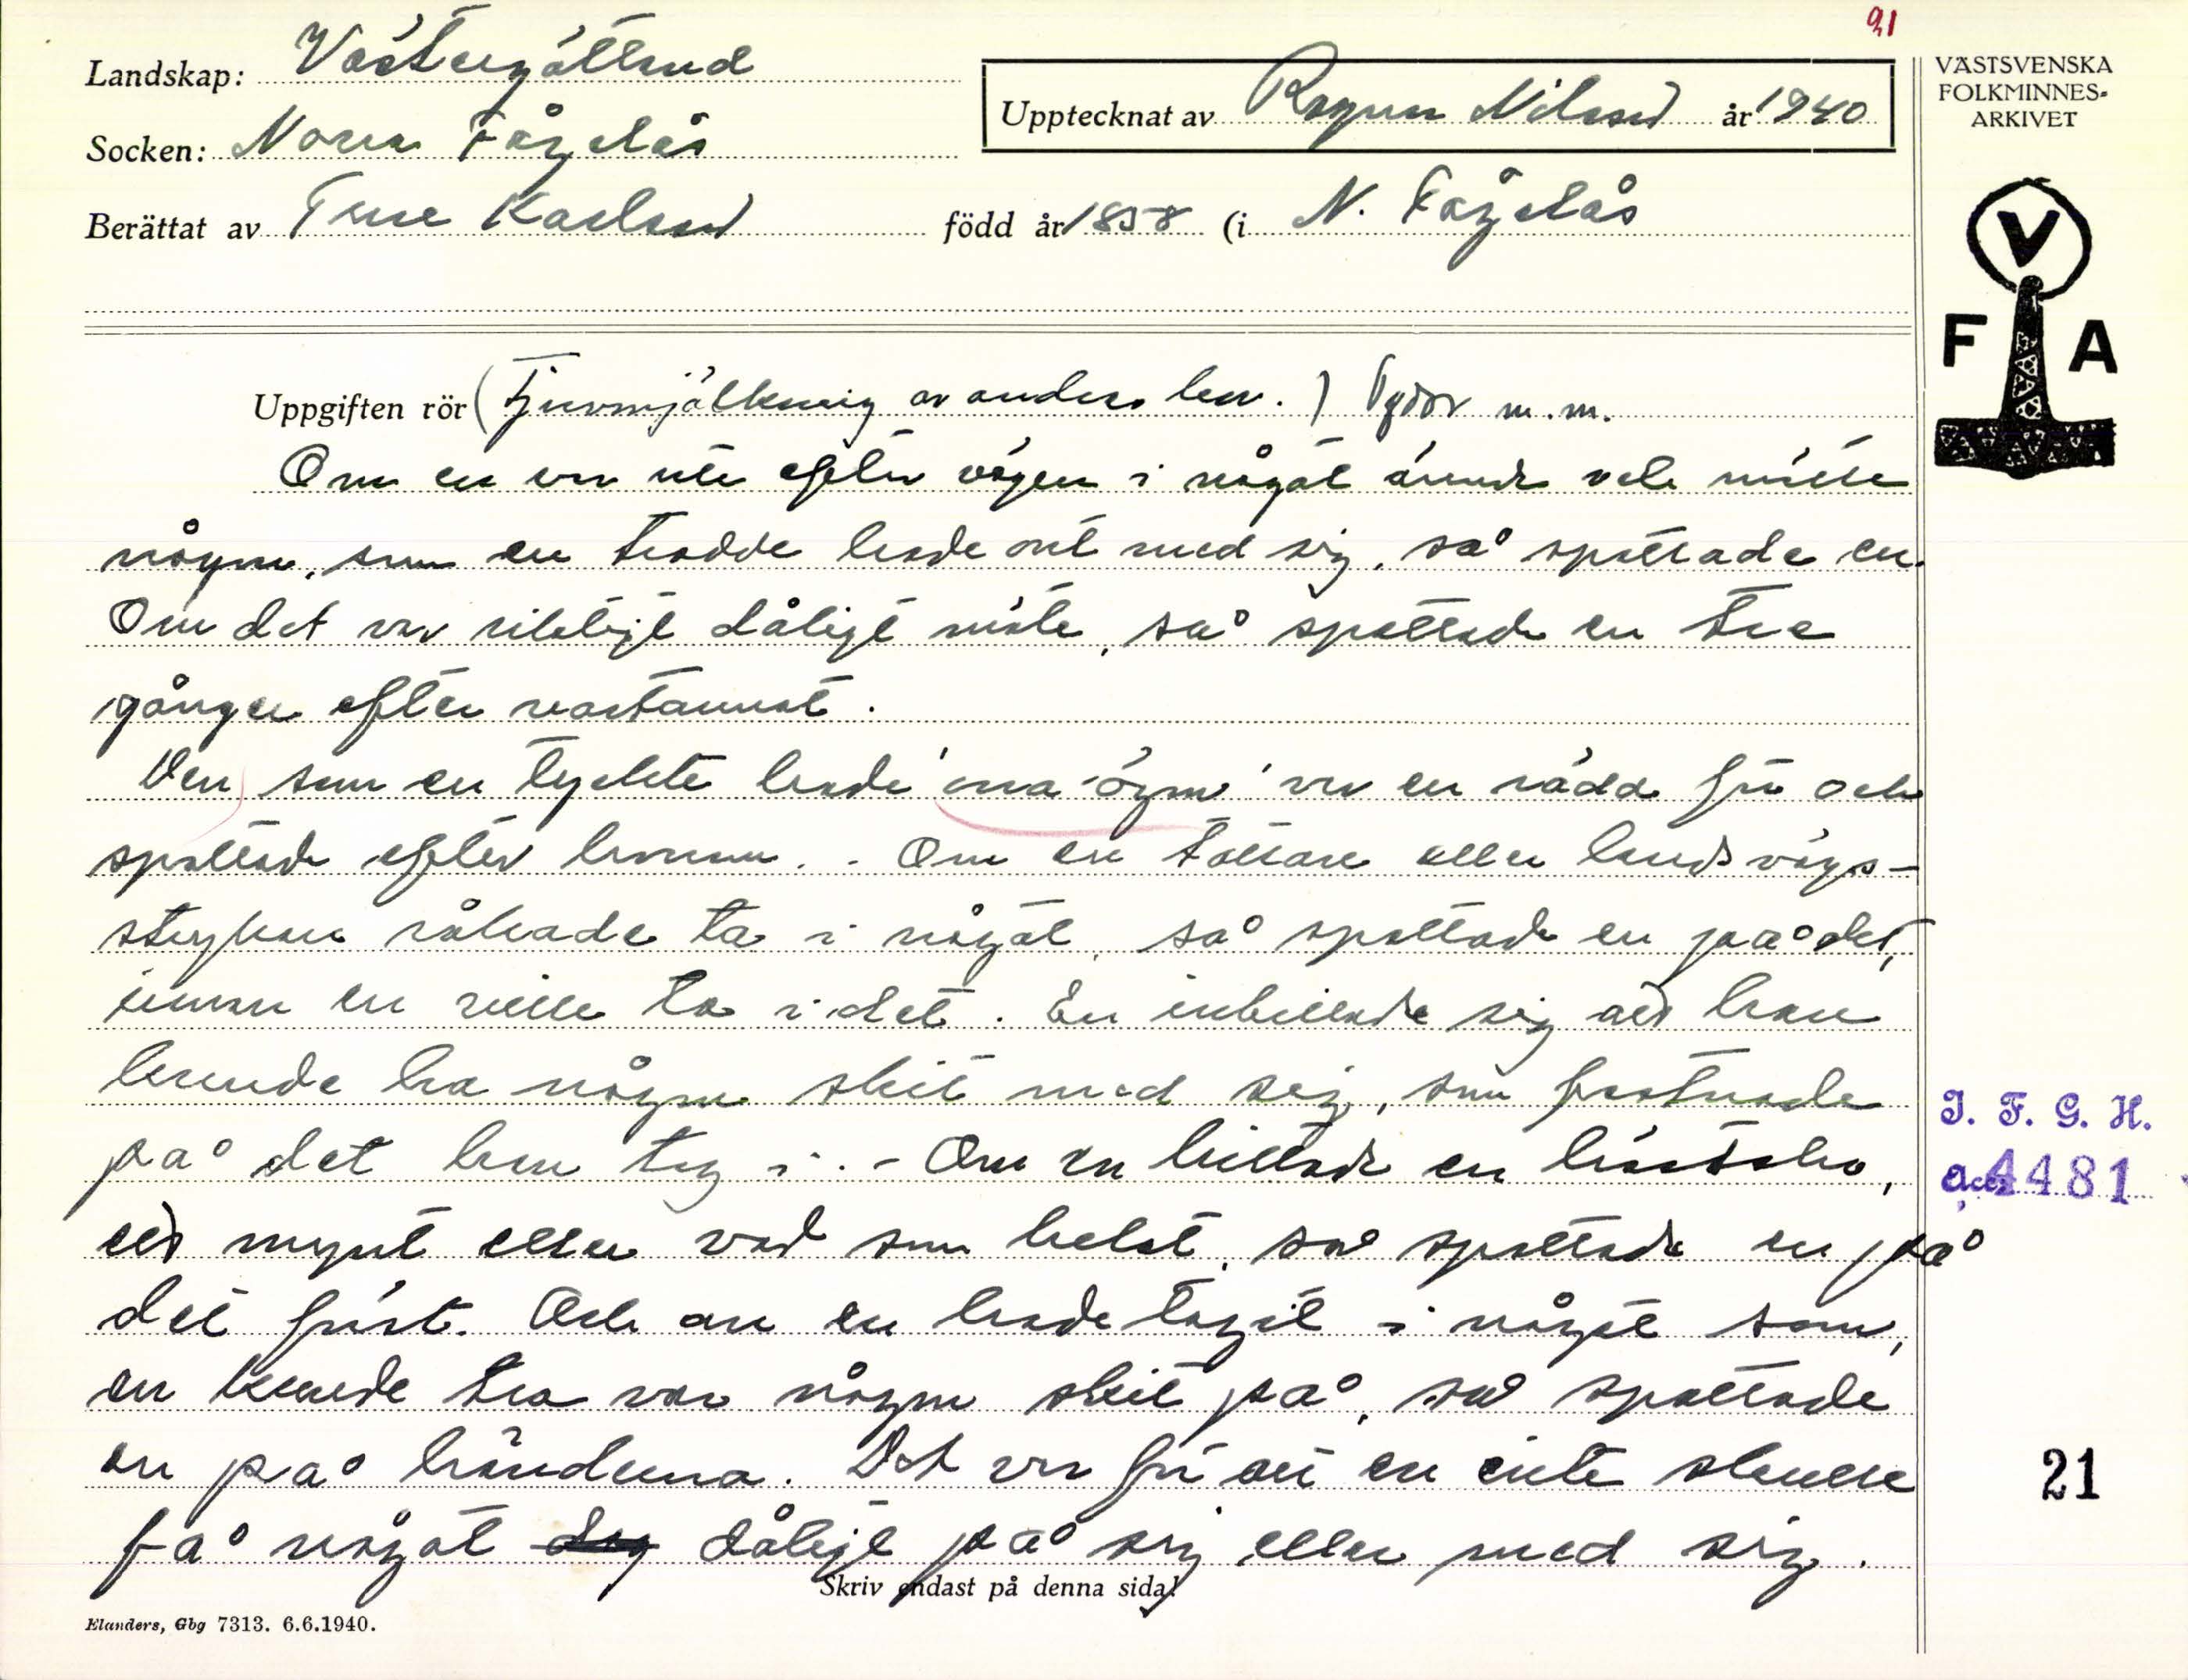 91
Landskap: Västergötland
Socken: Norra Fågelås
Upptecknat av Ragnar Nilsson år 1940
Berättat av Ture Karlsson född år 1858 (i N. Fågelås
VÄSTSVENSKA
FOLKMINNES-
ARKIVET
V
F A
Uppgiften rör (Tjuvmjölkning av andras kor.) m.m.
Om en var ute efter vägen i något ärende och mötte
någon, som en trodde hade ont med sig, så spottade en.
Om det var riktigt dåligt möte, så spottade en tre
gånger efter vartannat.
Den som en tyckte hade 'ona ögon' var en rädd för och
spottade efter honom. - Om en tattare eller landsvägs-
strykare råkade ta i något, så spottade en på det,
innan en ville ta i det. En inbillade sig att han
kunde ha någon skit med sig, som fastnade
på det han tog i. - Om en hittade en hästsko,
ett mynt eller vad som helst, så spottade en på
det först. Och om en hade tagit i något som,
en kunde tro var någon skit på, så spottade
en på händerna. Det var för att en inte skulle
få något dåligt på sig eller med sig.
Skriv endast på denna sida!
Elanders, Gbg 7313. 6.6.1940.
I. F. G. H.
acc 4481
21